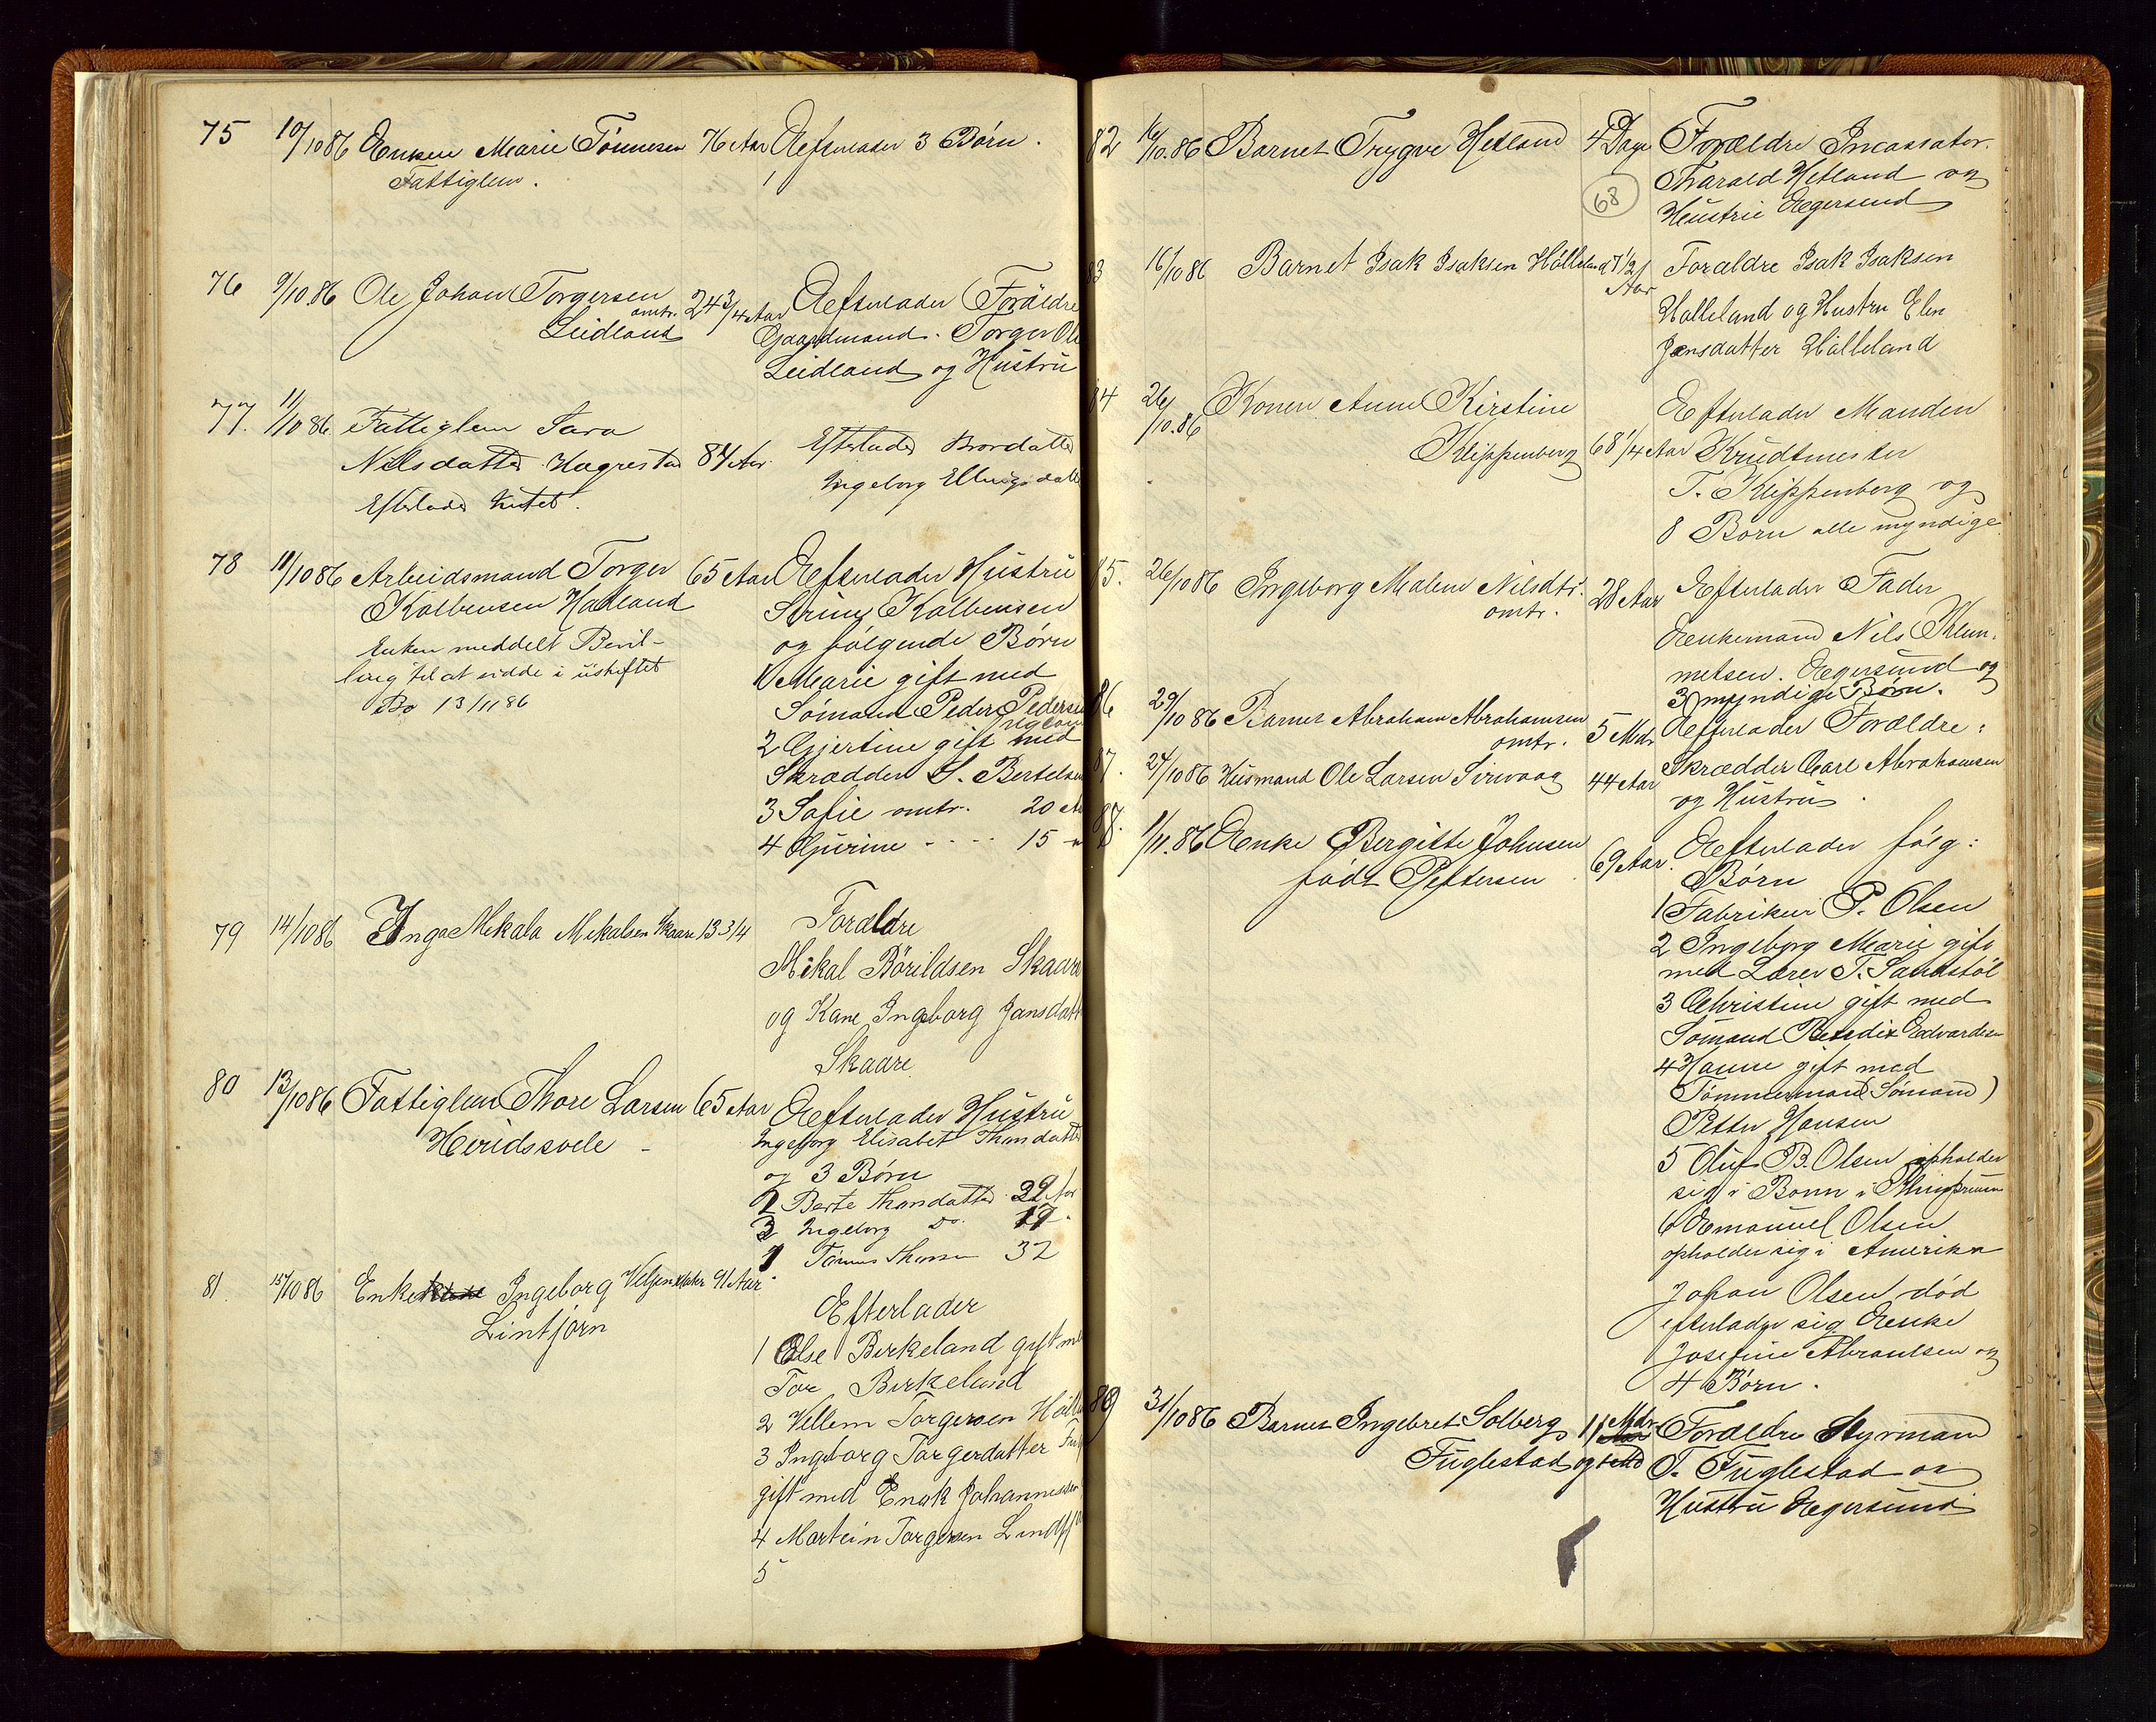 75 10/10 86 Enken Marie Tønnesen 76 Aar Efterlader 3 Børn.
Fattiglem.
76 9/10 86 Ole Johan Torgersen 24 3/4 Aar Efterlader Forældre
omtr.
Leidland
Gaardmand. Torger Ols
Leidland og Hustru
77. 11/10 86. Fattiglem Sara
Nilsdatter Hagrestad 84 Aar. Efterlader Brordatter
Ingeborg Ellingsdatter
Efterlader intet.
78 11/10 86 Arbeidsmand Torger 65 Aar Efterlader Hustru
Kolbensen Hadland
Enken meddelt Bevil-
ling til at sidde i uskiftet
Bo 13/11 86
Kolbensen
og følgende Børn
1 Marie gift med
Sømand Peder Pedersen
2 Gjertine gift med
Skrædder S. Bertelsen
3 Sofie omtr. 20 Aar
4 Gurine - - - - 15 "
79 14/10 86 Inga Mikala Mikalsen Skaare 13 3/4
Forældre
Mikal Bårildsen Skaare
og Kone Ingeborg Jansdatt
Skaare
80 13/10 86 Fattiglem Thore Larsen 65 Aar Efterlader Hustru
Heridssvele -
Ingeborg Elisabet Thorsdatter
og 3 Børn
2 Berte Thorsdatter 22 Aar
3 Ingeborg Do. 17.
1 Tønnes Thorsen 32
81. 15/10 86 Enke Ingeborg Veljensdatter 91 Aar.
Lintjørn
Efterlader
1 Else Birkeland gift m
Tor Birkeland
2 Vellem Torgersen
3 Ingeborg Torgerdatter
gift med Enok Johannessen
4 Martein Torgersen
5
82 16/10.86 Barnet Trygve Hetland 4 Dage Forældre Incassator.
68
Tharald Hetland og
Hustru Egersund
83 16/10 86 Barnet Isak Isaksen Hålleland 7 1/2
Aar
Forældre Isak Isaksen
Hålleland og Hustru Elen
Jensdatter Hålleland
84 26/10.86 Konen Anne Kirstine
Klippenberg 68 1/4 Aar
Efterlader Manden
Krudtmester
T. Klippenberg og
8 Børn alle myndige
85. 26/10 86 Ingeborg Malene Nilsdtr.
omtr. 28 Aar
Efterlader Fader
Enkemand Nils Klem-
metsen. Egersund og
3 myndige Børn.
86 29/10 86 Barnet Abraham Abrahamsen
omtr. 5 Mdr
Efterlader Forældre:
Skrædder Carl Abrahamsen
og Hustru.
87. 27/10 86 Husmand Ole Larsen Sirevaag 44 Aar
88. 1/11.86 Enke Bergitte Johnsen
født Pettersen 69 Aar.
Efterlader følg:
Børn
1 Fabrikeier P. Olsen
2 Ingeborg Marie gift
med Lærer T. Sandstøl
3 Christine gift med
Sømand Bendix Edvardsen
4 Hanne gift med
Tømmermand (Sømand)
Petter Hansen
5 Oluf B. Olsen opholder
sig i Bonn i
6 Emanuel Olsen
opholder sig i Amerika
Johan Olsen død
efterlader sig Enke
Josefine Abrantsen og
4 Børn.
89 31/10 86 Barnet Ingebret Solberg 11 Mdr
Fuglestad
Forældre Styrmand
T. Fuglestad og
Hustru Egersund